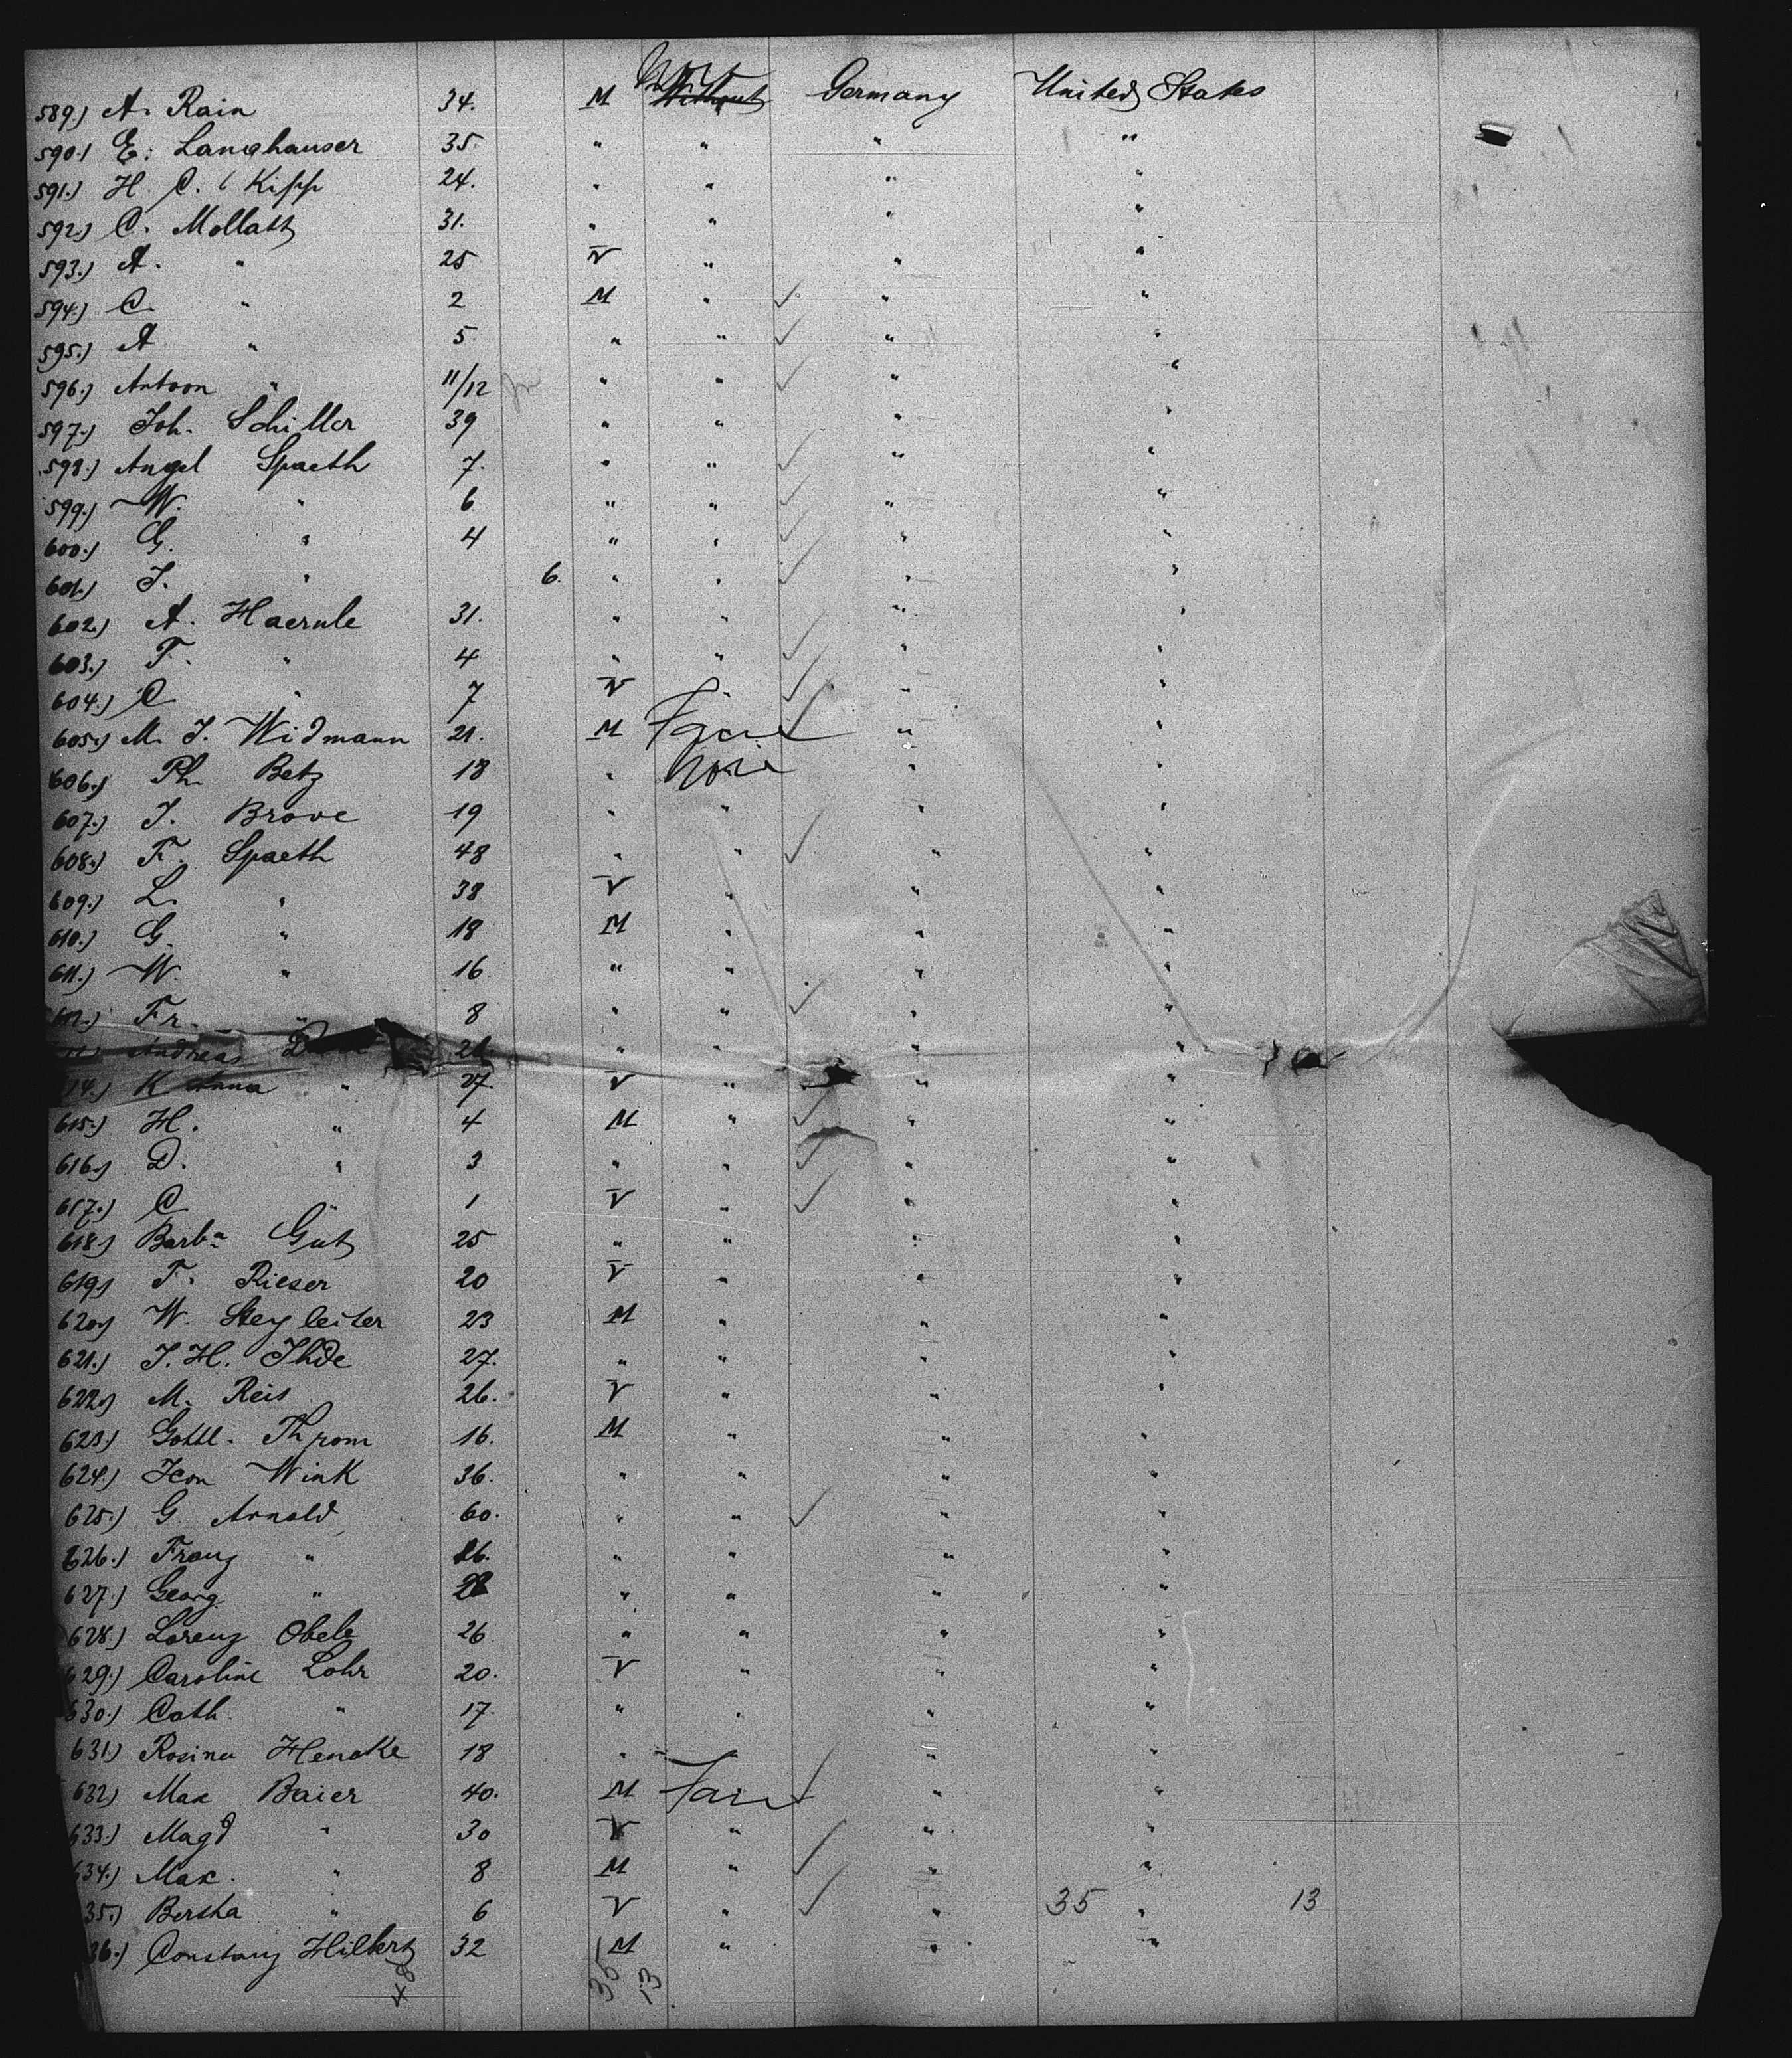 589.) A. Rain 34. M None Without Germany United States
590.) E. Langhauser 35. " " " "
591.) H. C. Kipp 24. " " " "
592.) C. Mollatt 31. " " " "
593.) A. " 25 V " " "
594.) C " 2 M " ✓ " "
595.) A " 5. " " ✓ " "
596.) Antoon " 11/12 " " ✓ " "
597.) Joh. Schiller 39 " " " "
598.) Angel Spaeth 7. " " ✓ " "
599.) W. " 6 " " ✓ " "
600.) G. " 4 " " ✓ " "
601.) J. " 6. " " ✓ " "
602.) A. Haernle 31. " " " "
603.) F. " 4 " " ✓ " "
604.) C " 7 V " ✓ " "
605.) M. J. Widmann 21. M ✓ " "
606.) Ph. Betz 18 " None " "
607.) J. Brove 19 " " " "
608.) F. Spaeth 48 " " ✓ " "
609.) L. " 38 V " " "
610.) G. " 18 M " " "
611.) W. " 16 " " " "
612.) Fr. " 8 " " ✓ " "
Andreas " " " "
14.) K Anna " 27. V " " "
615.) H. " 4 M " ✓ " "
616.) D. " 3 " " ✓ " "
617.) C " 1 V " ✓ " "
618.) Barba Gut 25 " " " "
619.) F. Rieser 20 V " " "
620.) W. Steyleiter 23 M " " "
621.) J. H. Ihde 27. " " " "
622.) M. Reis 26. V " " "
623.) Gottl. Throm 16. M " " "
624.) Wink 36. " " " "
625.) G Arnold 60. " " ✓ " "
626.) Franz " " " " "
627.) Georg " " " " "
628.) Lorenz Obele 26 " " " "
629.) Caroline Lohr 20. V " " "
630.) Cath. " 17. " " " "
631.) Rosina Hencke 18 " " " "
632.) Max Baier 40. M ✓ " "
633.) Magd " 30 V " " "
634.) Max. " 8 M " ✓ " "
35.) Bertha " 6 V " ✓ " 35 " 13
36.) Constanz Hilbert 32 M " " "
48 35 13